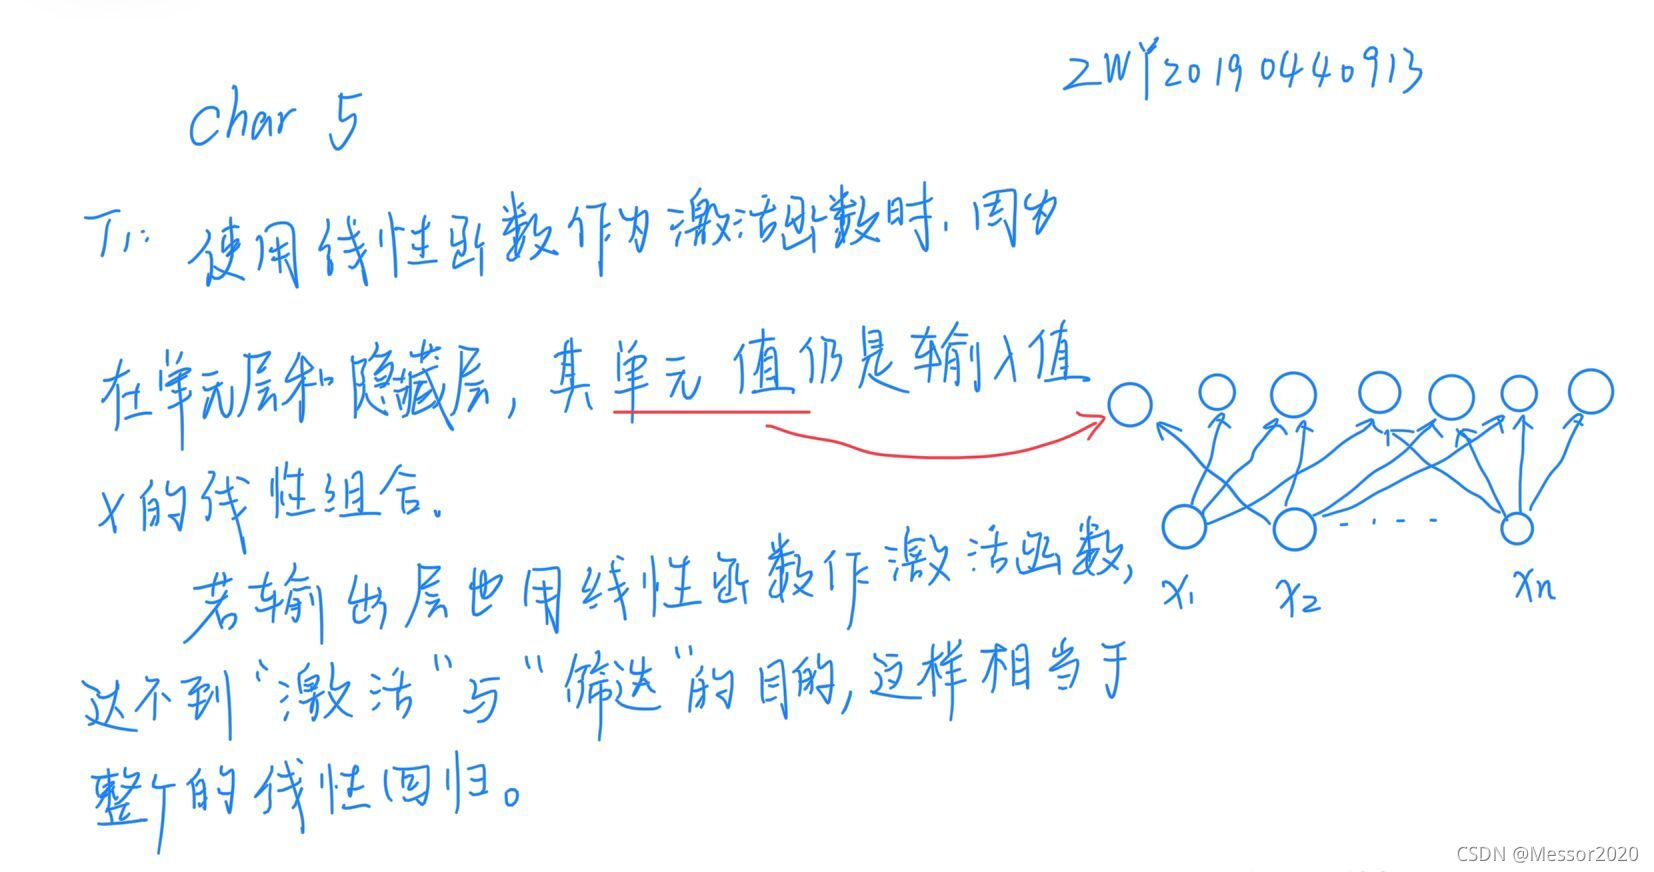 ZWY20190440913
Char 5
T1: 使用线性函数作为激活函数时,因为
在单元层和隐藏层,其单元值仍是输入值
X的线性组合。
若输出层也用线性函数作激活函数,
达不到“激活”与“筛选”的目的,这样相当于
整个的线性回归。
x1 x2 ---- xn
CSDN @Messor2020